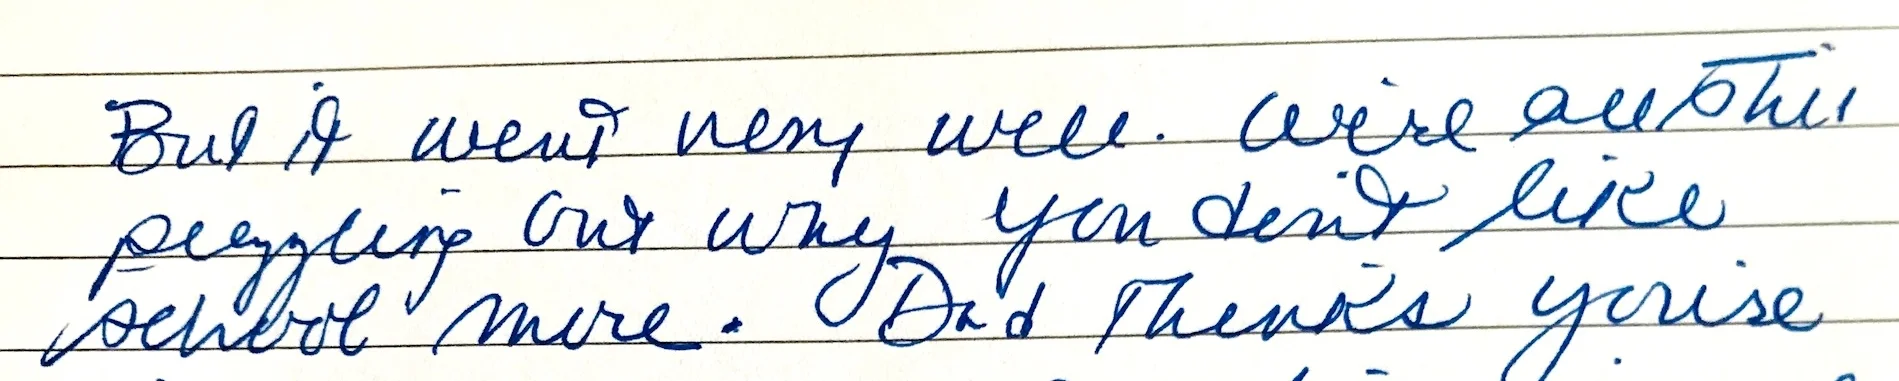 But it went very well. We're all still
puzzling out why you don't like
school more. Dad thinks you're